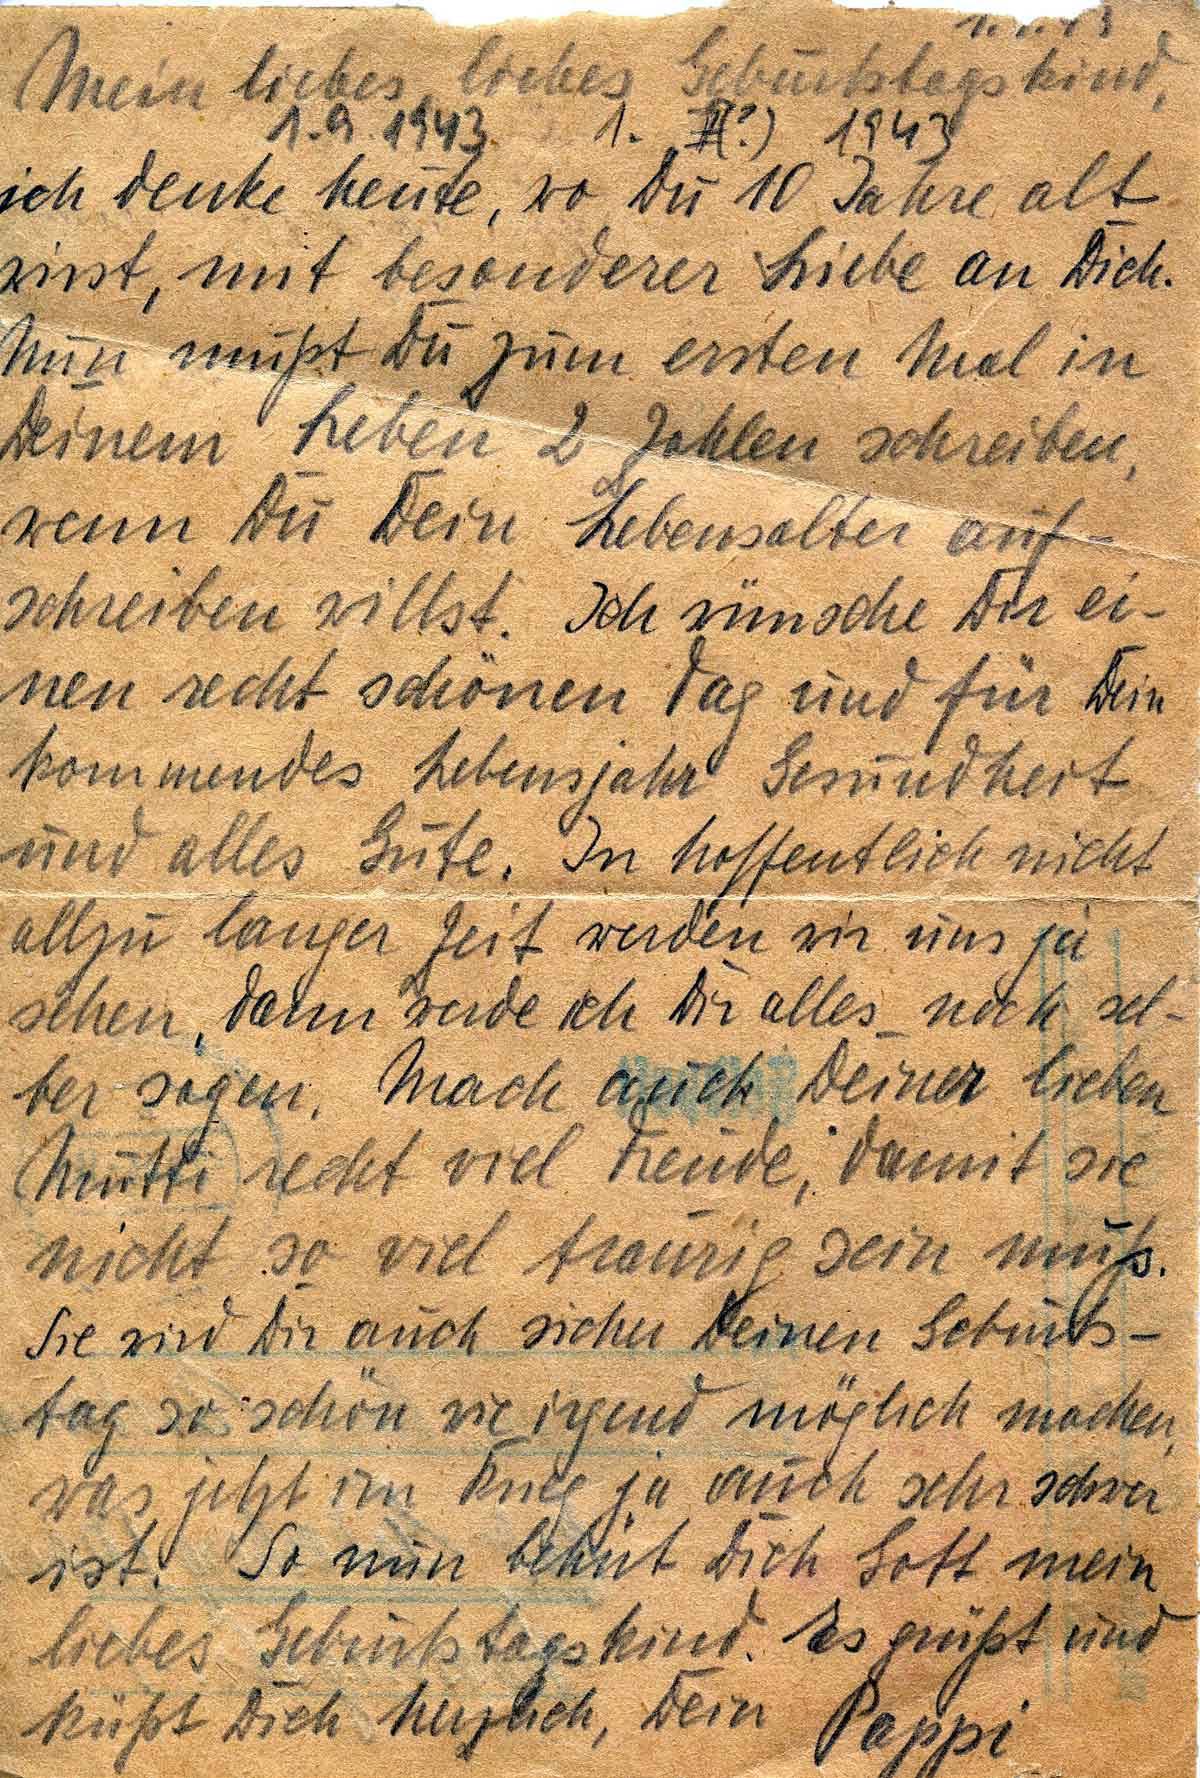 Mein liebes, liebes Geburtstagskind,
1.9.1943 1. (?) 1943
ich denke heute, wo Du 10 Jahre alt
wirst, mit besonderer Liebe an Dich.
Nun mußt Du zum ersten Mal in
Deinem Leben 2 Zahlen schreiben,
wenn Du Dein Lebensalter auf-
schreiben willst. Ich wünsche Dir ei-
nen recht schönen Tag und für Dein
kommendes Lebensjahr Gesundheit
und alles Gute. In hoffentlich nicht
allzu langer Zeit werden wir uns ja
sehen, dann werde ich Dir alles noch sel-
ber sagen. Mach auch Deiner lieben
Mutti recht viel Freude, damit sie
nicht so viel traurig sein muß.
Sie wird Dir auch sicher Deinen Geburts-
tag so schön wie irgend möglich machen,
was jetzt im Krieg ja auch sehr schwer
ist. So nun behüt Dich Gott mein
liebes Geburtstagskind. Es grüßt und
küßt Dich herzlich, Dein Pappi